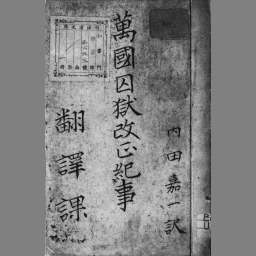 萬國囚獄改正紀事
内田嘉一訳
翻譯課